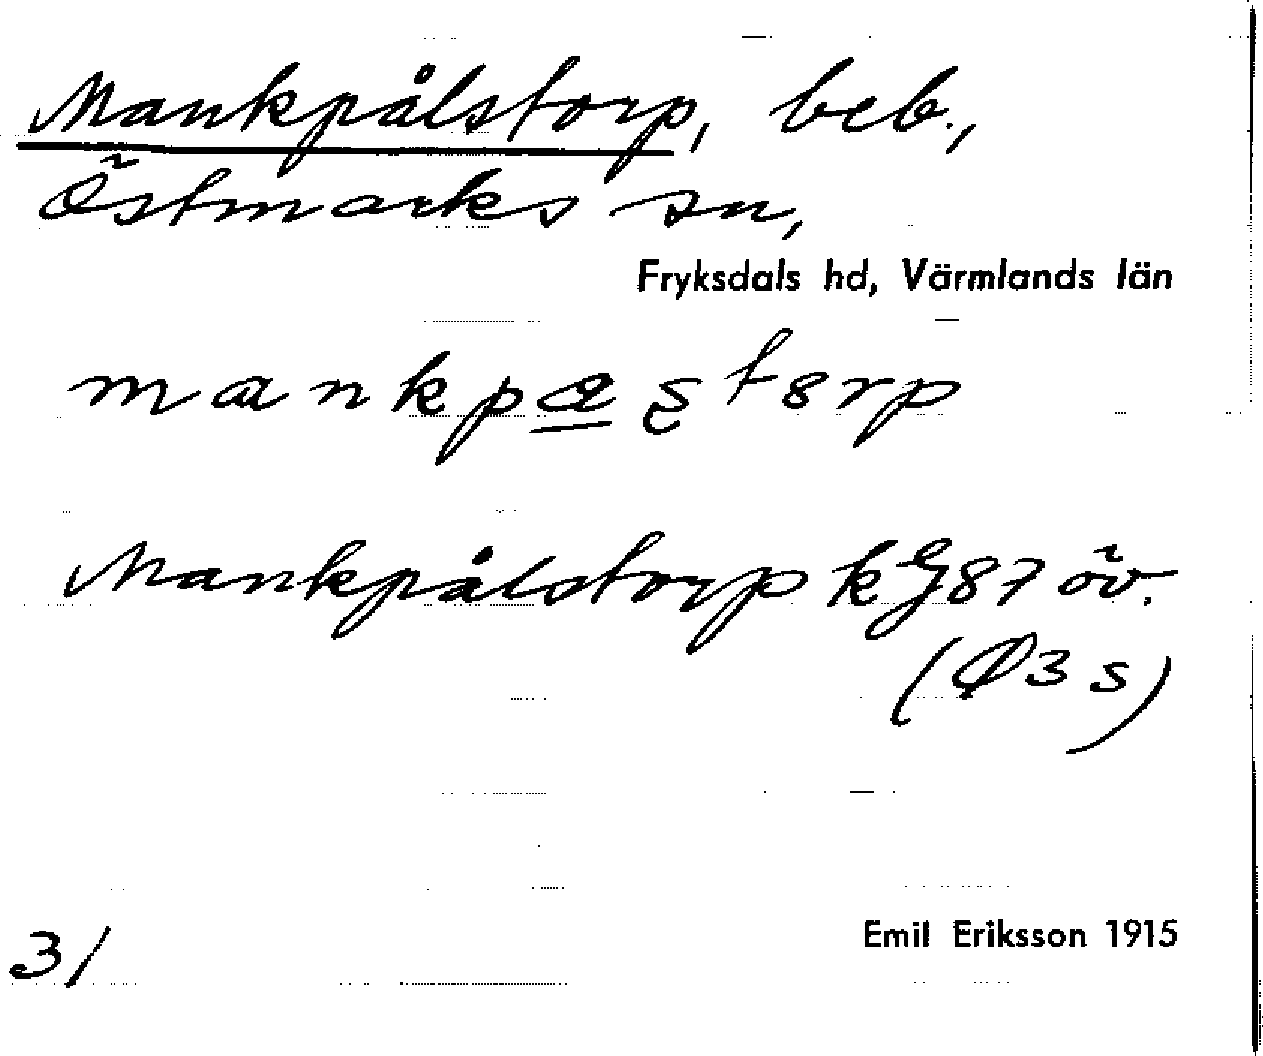 Mankpålstorp, beb.,
Östmarks sn,
Fryksdals hd, Värmlands län
Mankpålstorp kG87 öv.
(Ø3s)
31
Emil Eriksson 1915